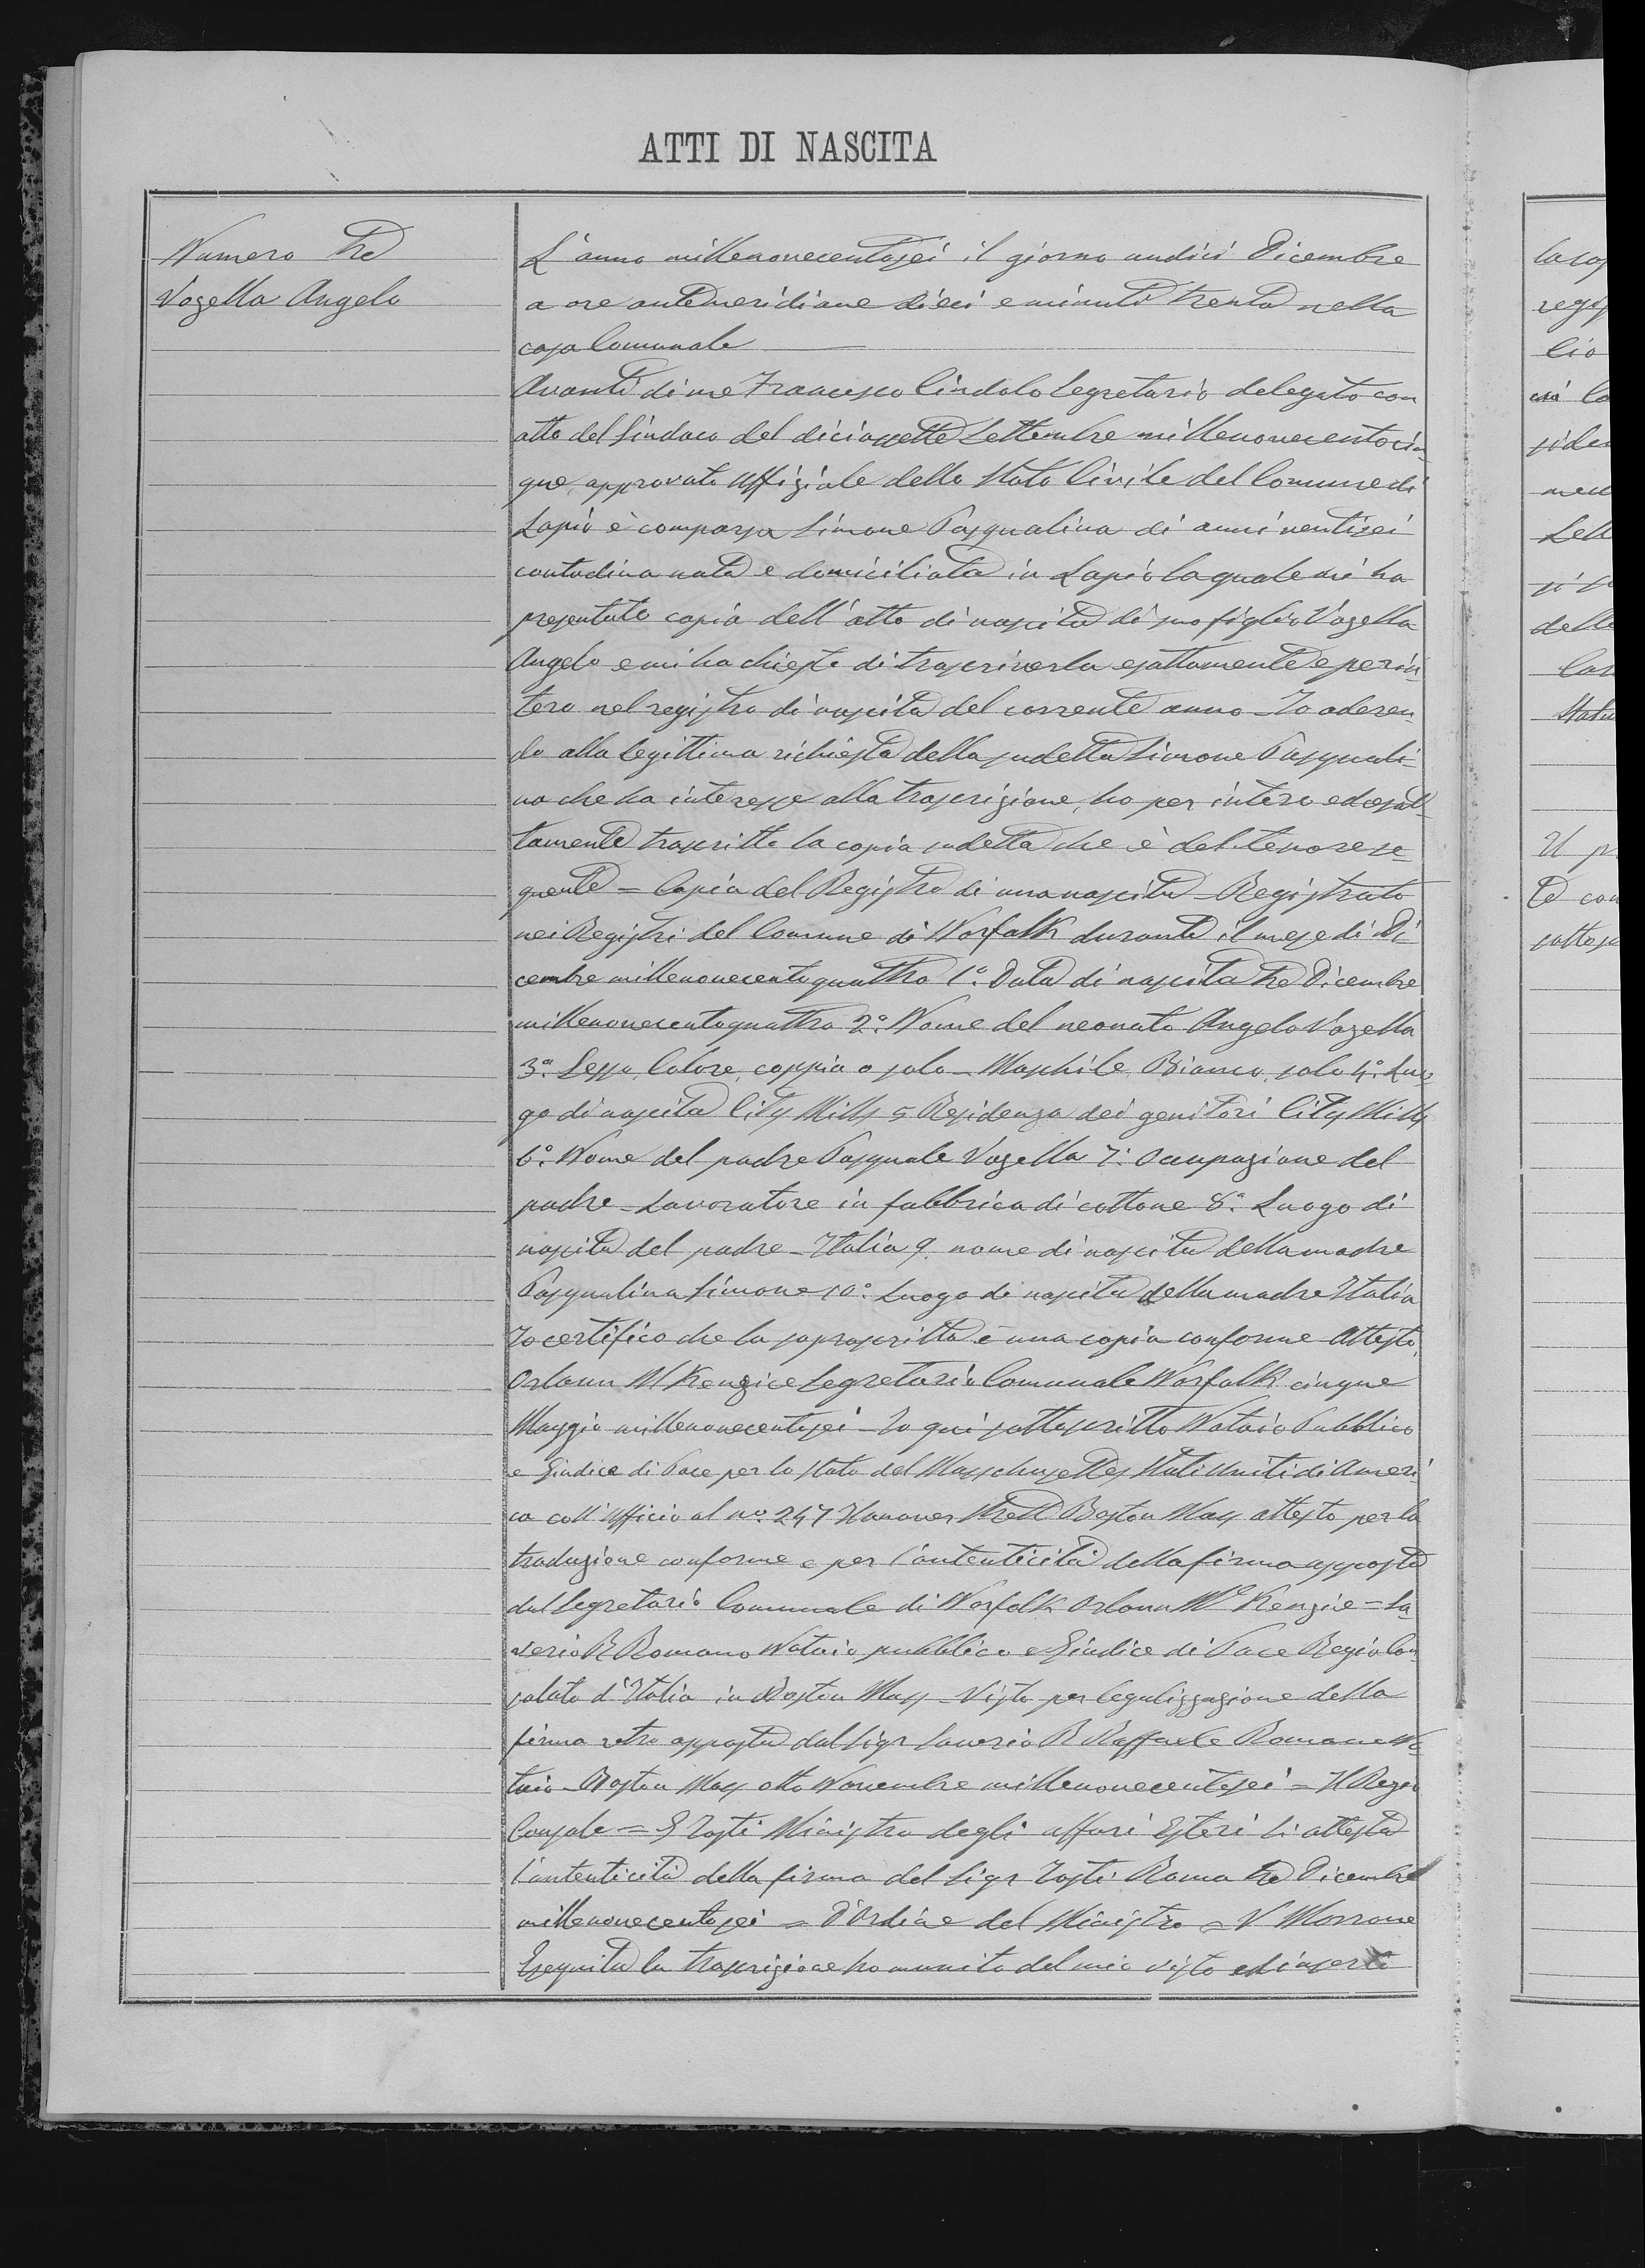 ATTI DI NASCITA
Numero tre
Vozella Angelo
L'anno millenovecentosei il giorno undici Dicembre
a ore antemeridiane dieci e minuti trenta nella
casa Comunale
Avanti di me Francesco Cindolo Segretario delegato con
atto del Sindaco del diciassette Settembre millenovecentocin-
que, approvato Uffiziale dello Stato Civile del Comune di
Lapio è comparsa Simone Pasqualina di anni ventisei
contadina nata e domiciliata in Lapio la quale mi ha
presentato copia dell'atto di nascita di suo figlio Vozella
Angelo e mi ha chiesto di trascriverla esattamente e per in-
tero nel registro di nascita del corrente anno - Io aderen-
do alla legittima richiesta della sudetta Simone Pasquali-
na che ha interesse alla trascrizione, ho per intero ed esat-
tamente trascritto la copia sudetta che è del tenore se-
guente = Copia del Registro di una nascita - Registrato
nei Registri del Comune di Norfolk durante il mese di Di-
cembre millenovecentoquattro 1° Data di nascita tre Dicembre
millenovecentoquattro 2° Nome del neonato Angelo Vozella
3° Sesso, Colore, coppia o solo - Maschile, Bianco, solo 4° Luo-
go di nascita City Mills 5 Residenza dei genitori City Mills
6° Nome del padre Pasquale Vozella 7° Occupazione del
padre - Lavoratore in fabbrica di cottone 8° Luogo di
nascita del padre - Italia 9. nome di nascita della madre
Pasqualina Simone 10° Luogo di nascita della madre Italia
Io certifico che la soprascritta è una copia conforme - Attesto,
Orlann M Kenzie Segretario Comunale Norfolk cinque
Maggio millenovecentosei - Io qui sottoscritto Notaio Pubblico
e Giudice di Pace per lo stato del Masschusettes Stati Uniti di Ameri-
ca coll'ufficio al no. 247 Hanover Strett Boston Mass attesto per la
traduzione conforme e per l'autenticità della firma apposta
dal Segretario Comunale di Norfolk Orlann Mc Kenzie = Sa-
verio R Romano Notaio pubblico e Giudice di Pace Regio Con-
solato d'Italia in Boston Mass - Visto per legalizzazione della
firma retro apposta dal Sigr Saverio R Raffaele Romano No-
taio - Boston Mass otto Novembre millenovecentosei = Il Regio
Console = G Tosti Ministro degli affari Esteri Si attesta
l'autenticità della firma del Sigr Tosti Roma tre Dicembre
millenovecentosei = D'Ordine del Ministro = V Morrone
Eseguita la trascrizione ho munito del mio visto ed inserto